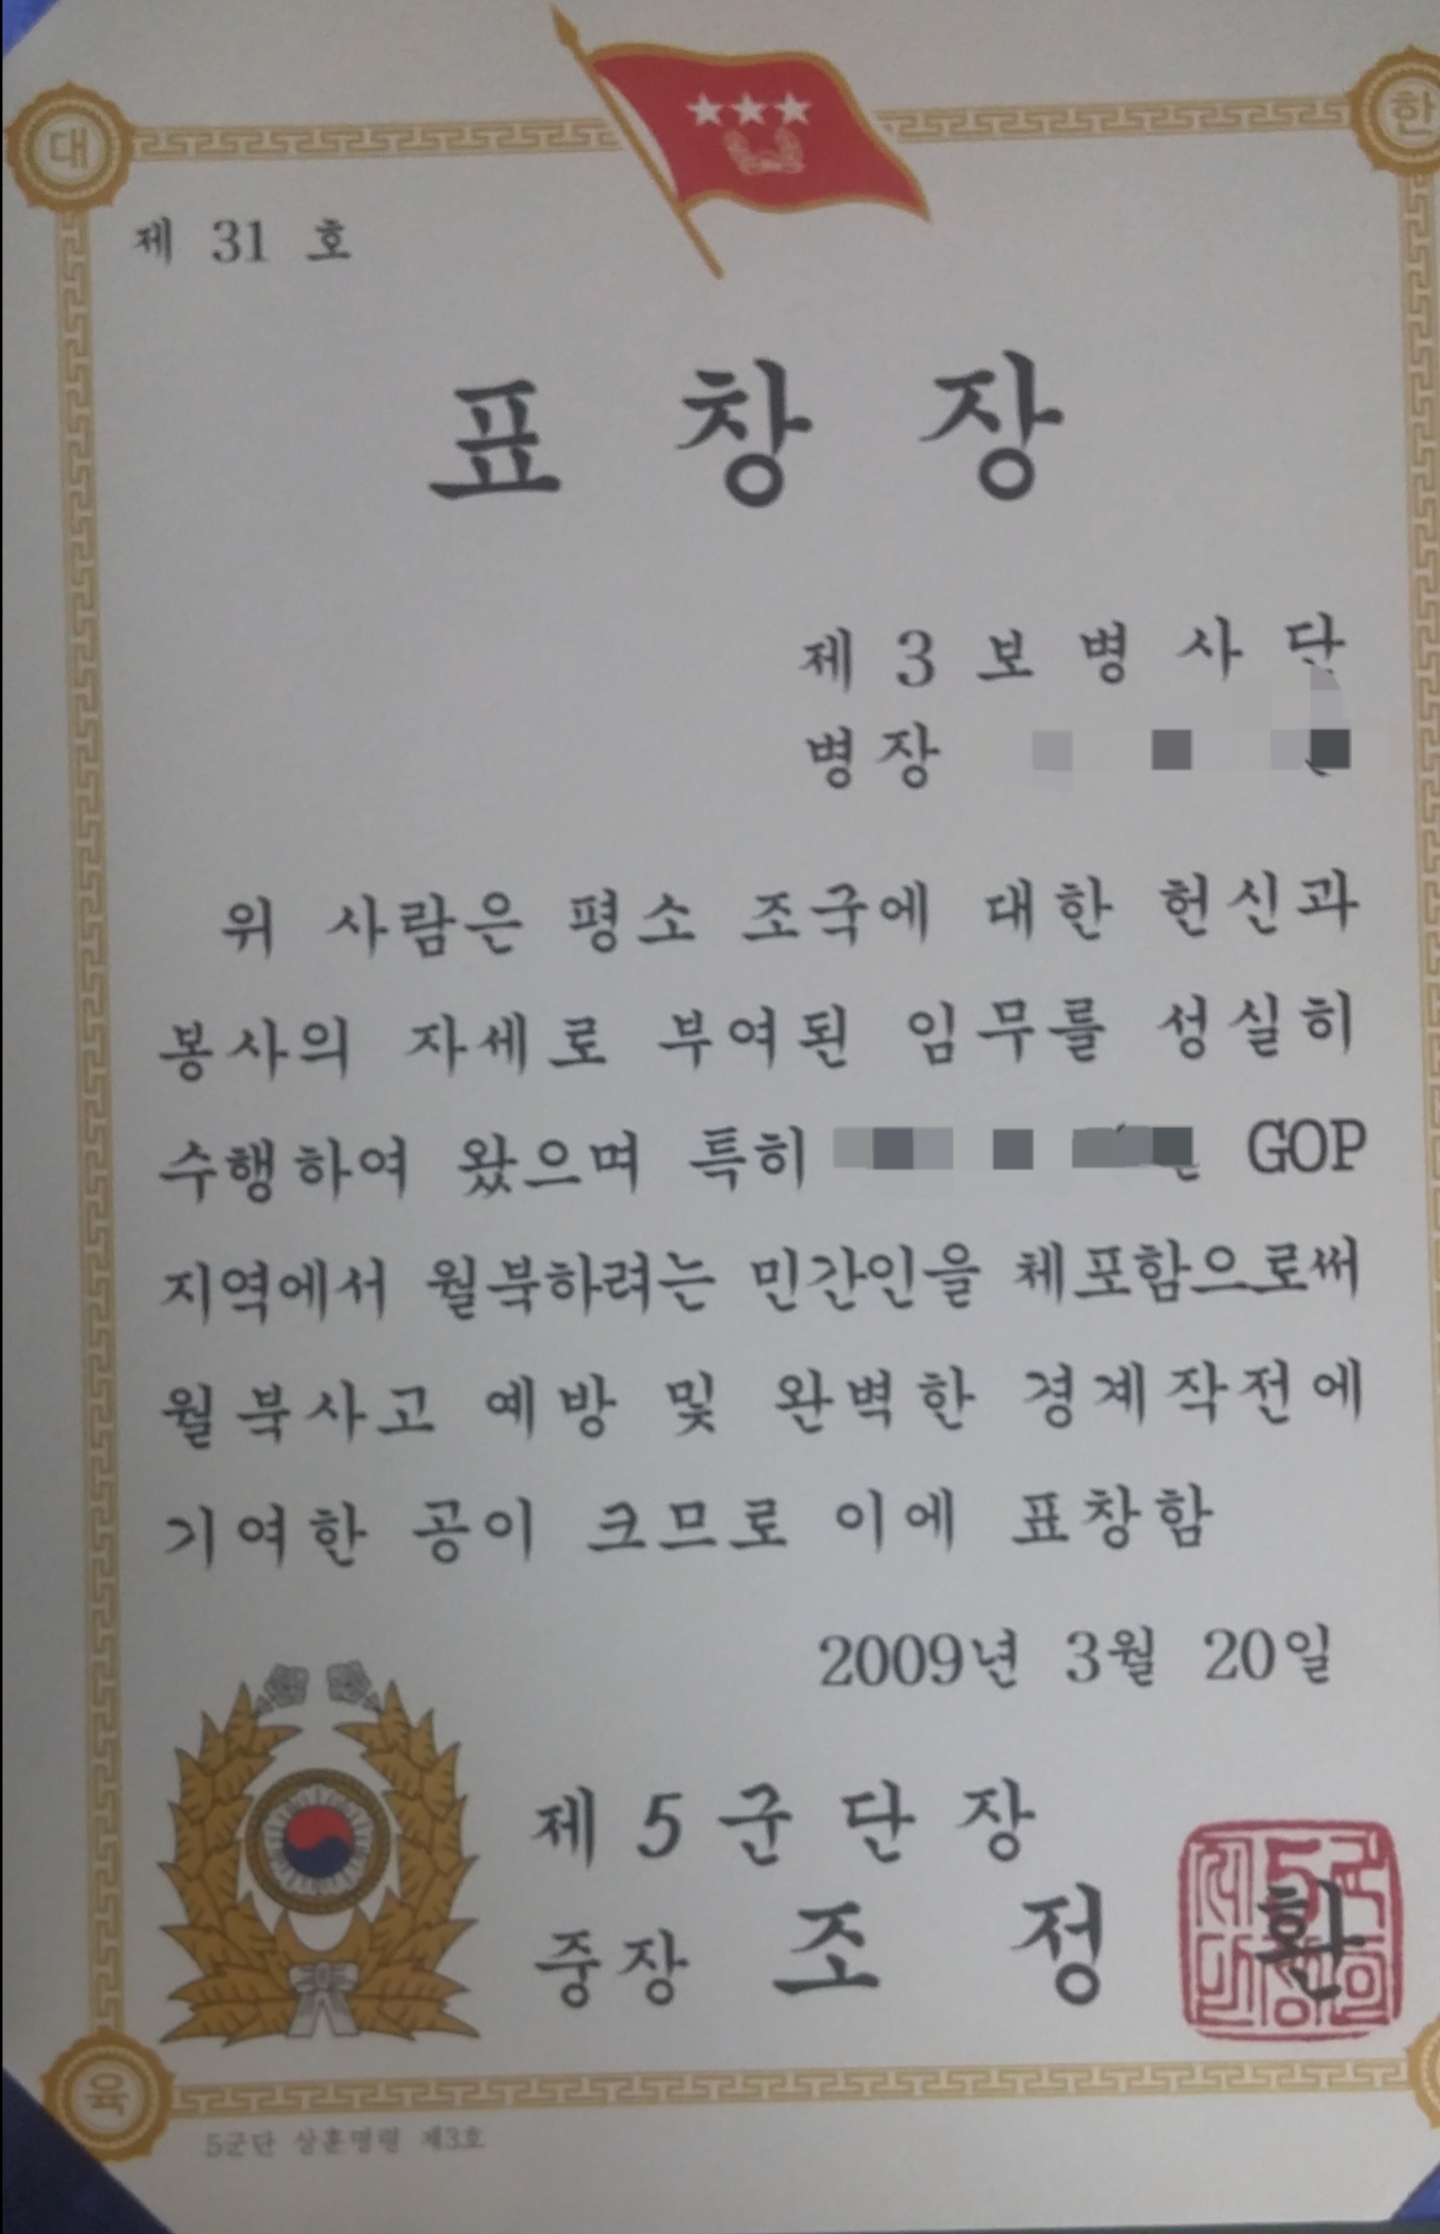 대
한
제 31 호
표 창 장
제 3 보 병 사 단
병장
위 사람은 평소 조국에 대한 헌신과
봉사의 자세로 부여된 임무를 성실히
수행하여 왔으며 특히 GOP
지역에서 월북하려는 민간인을 체포함으로써
월북사고 예방 및 완벽한 경계작전에
기여한 공이 크므로 이에 표창함
2009년 3월 20일
제 5 군 단 장
중장 조 정 환
육
5군단 상훈명령 제3호